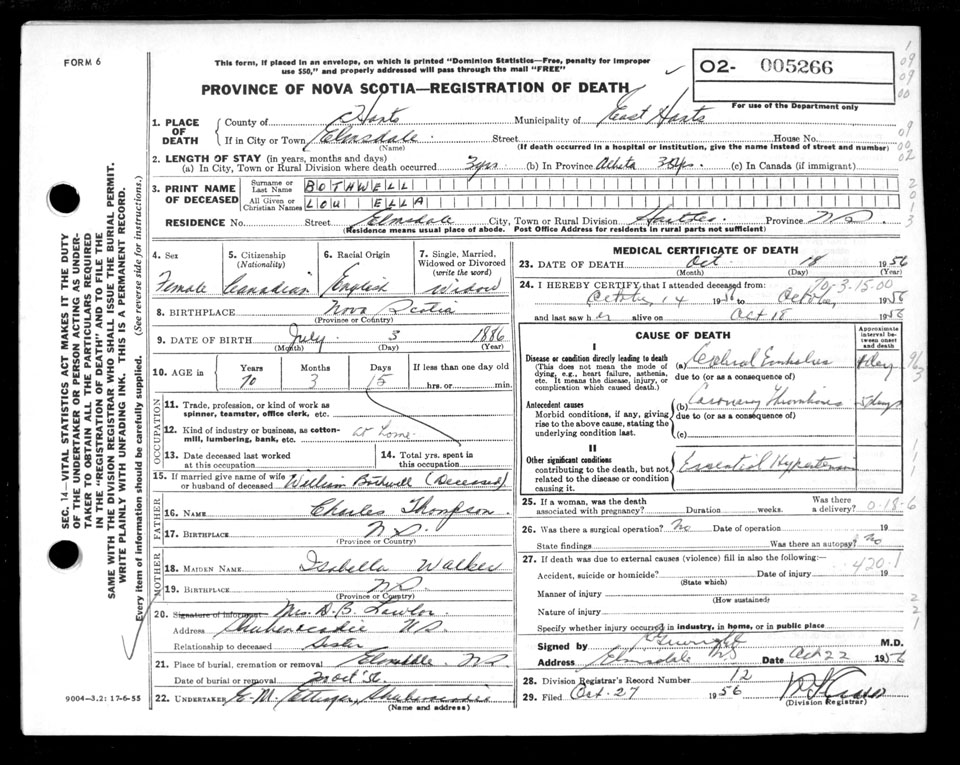 FORM 6
This form, if placed in an envelope, on which is printed "Dominion Statistics—Free, penalty for improper
use $50," and properly addressed will pass through the mail "FREE"
O2- 005266
PROVINCE OF NOVA SCOTIA—REGISTRATION OF DEATH
For use of the Department only
1. PLACE OF DEATH
County of Hants Municipality of East Hants
If in City or Town Elmsdale Street House No.
(Name) (If death occurred in a hospital or institution, give the name instead of street and number)
2. LENGTH OF STAY (in years, months and days)
(a) In City, Town or Rural Division where death occurred 3 yrs. (b) In Province (c) In Canada (if immigrant)
3. PRINT NAME OF DECEASED
Surname or Last Name BOTHWELL
All Given or Christian Names LOU ELLA
RESIDENCE No. Street Elmsdale City, Town or Rural Division Province N.S.
(Residence means usual place of abode. Post Office Address for residents in rural parts not sufficient)
4. Sex
Female
5. Citizenship (Nationality)
Canadian
6. Racial Origin
English
7. Single, Married, Widowed or Divorced (write the word)
Widow
8. BIRTHPLACE Nova Scotia
(Province or Country)
9. DATE OF BIRTH July 3 1886
(Month) (Day) (Year)
10. AGE Years Months Days If less than one day old
70 3 15 hrs. or min.
OCCUPATION
11. Trade, profession, or kind of work as
spinner, teamster, office clerk, etc.
12. Kind of industry or business, as cotton-
mill, lumbering, bank, etc. at home
13. Date deceased last worked
at this occupation
14. Total yrs. spent in
this occupation
15. If married give name of wife
or husband of deceased William Bothwell (Deceased)
FATHER
16. NAME Charles Thompson
17. BIRTHPLACE N.S.
(Province or Country)
MOTHER
18. MAIDEN NAME Isabella Walker
19. BIRTHPLACE N.S.
(Province or Country)
20. Signature of informant Mrs. D. B. Lawlor
Address Shubenacadie N.S.
Relationship to deceased Sister
21. Place of burial, cremation or removal Elmsdale N.S.
Date of burial or removal Oct 56
22. UNDERTAKER E. M. Ettinger, Shubenacadie
(Name and address)
MEDICAL CERTIFICATE OF DEATH
23. DATE OF DEATH Oct. 18 1956
(Month) (Day) (Year)
24. I HEREBY CERTIFY that I attended deceased from: 70-3-15.00
October 14 1956 to October 1956
and last saw her alive on Oct 18 1956
CAUSE OF DEATH
Approximate interval between onset and death
I
Disease or condition directly leading to death
(This does not mean the mode of
dying, e.g., heart failure, asthenia,
etc. It means the disease, injury, or
complication which caused death.)
(a) Cerebral Embolus 1 day
due to (or as a consequence of)
Antecedent causes
Morbid conditions, if any, giving
rise to the above cause, stating the
underlying condition last.
(b) Coronary Thrombosis 5 days
due to (or as a consequence of)
(c)
II
Other significant conditions
contributing to the death, but not
related to the disease or condition
causing it.
Essential Hypertension
25. If a woman, was the death
associated with pregnancy? Duration weeks.
Was there
a delivery? 0-18-6
26. Was there a surgical operation? No Date of operation 19
State findings Was there an autopsy? No
27. If death was due to external causes (violence) fill in also the following:—
Accident, suicide or homicide? Date of injury 19
420.1
(State which)
Manner of injury
(How sustained)
Nature of injury
Specify whether injury occurred in industry, in home, or in public place
Signed by M.D.
Address Elmsdale NS Date Oct 22 1956
28. Division Registrar's Record Number 12
29. Filed Oct-27 1956
(Division Registrar)
9004—3.2: 17-6-55
SEC. 14—VITAL STATISTICS ACT MAKES IT THE DUTY
OF THE UNDERTAKER OR PERSON ACTING AS UNDER-
TAKER TO OBTAIN ALL THE PARTICULARS REQUIRED
IN THE "REGISTRATION OF DEATH" AND TO FILE THE
SAME WITH THE DIVISION REGISTRAR WHO SHALL ISSUE THE BURIAL PERMIT.
WRITE PLAINLY WITH UNFADING INK. THIS IS A PERMANENT RECORD.
Every item of information should be carefully supplied. (See reverse side for instructions.)